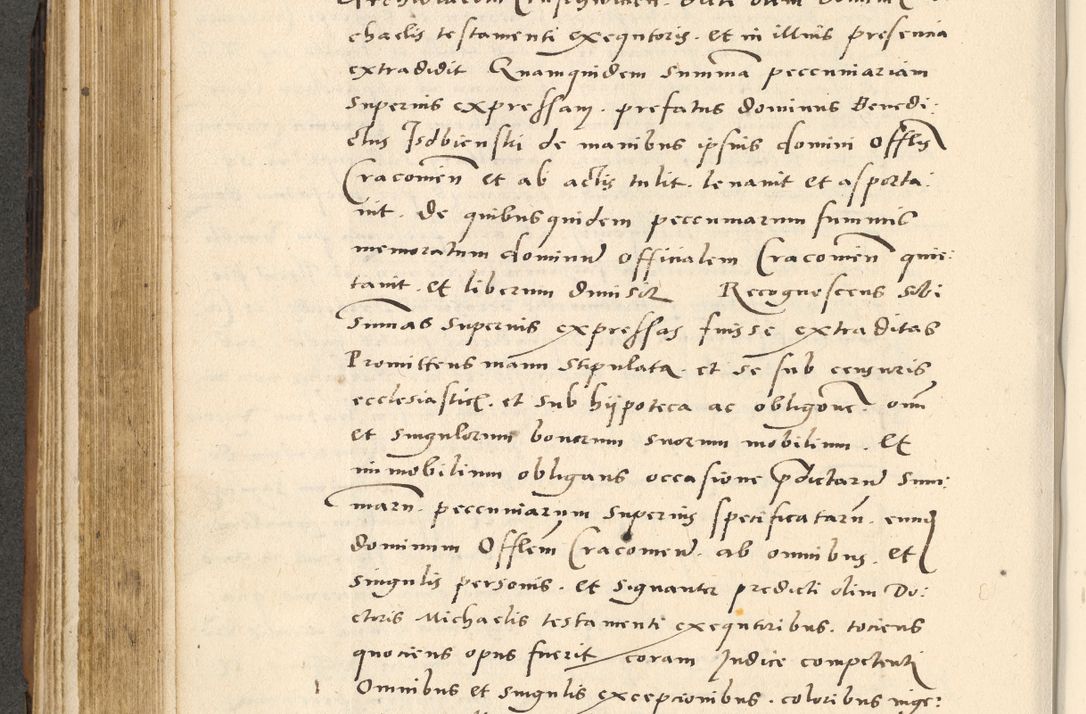 chaelis testamenti exequtoris. et in illius presencia
extradidit Quamquidem summa peccuniariam
superius expressam. prefatus dominus Benedi:
ctus Isdbienski de manibus ipsius domini Offlis
Cracouien et ab actis tulit. leuauit et asporta:
uit. de quibusquidem peccuniarum summis
memoratum dominum Officialem Cracouien quie:
tauit. et liberum dimisit Recognoscens sibi
Summas superius expressas fuisse extraditas
Promittens manu stipulata. et se sub censuris
ecclesiastic. et sub hypoteca ac obligone. omni
et singulorum bonorum suorum mobilium. Et
immobilium obligans occasione pdictarum sum:
maru. peccuniarum superius specificataru. eund
dominum Offlem Cracouien. ab omnibus. et
singulis personis. et signanter predicti olim Do:
ctoris Michaelis testamenti exequtoribus. tociens
quociens opus fuerit coram Judice competenti
Omnibus et singulis excepcionibus. coloribus inge: